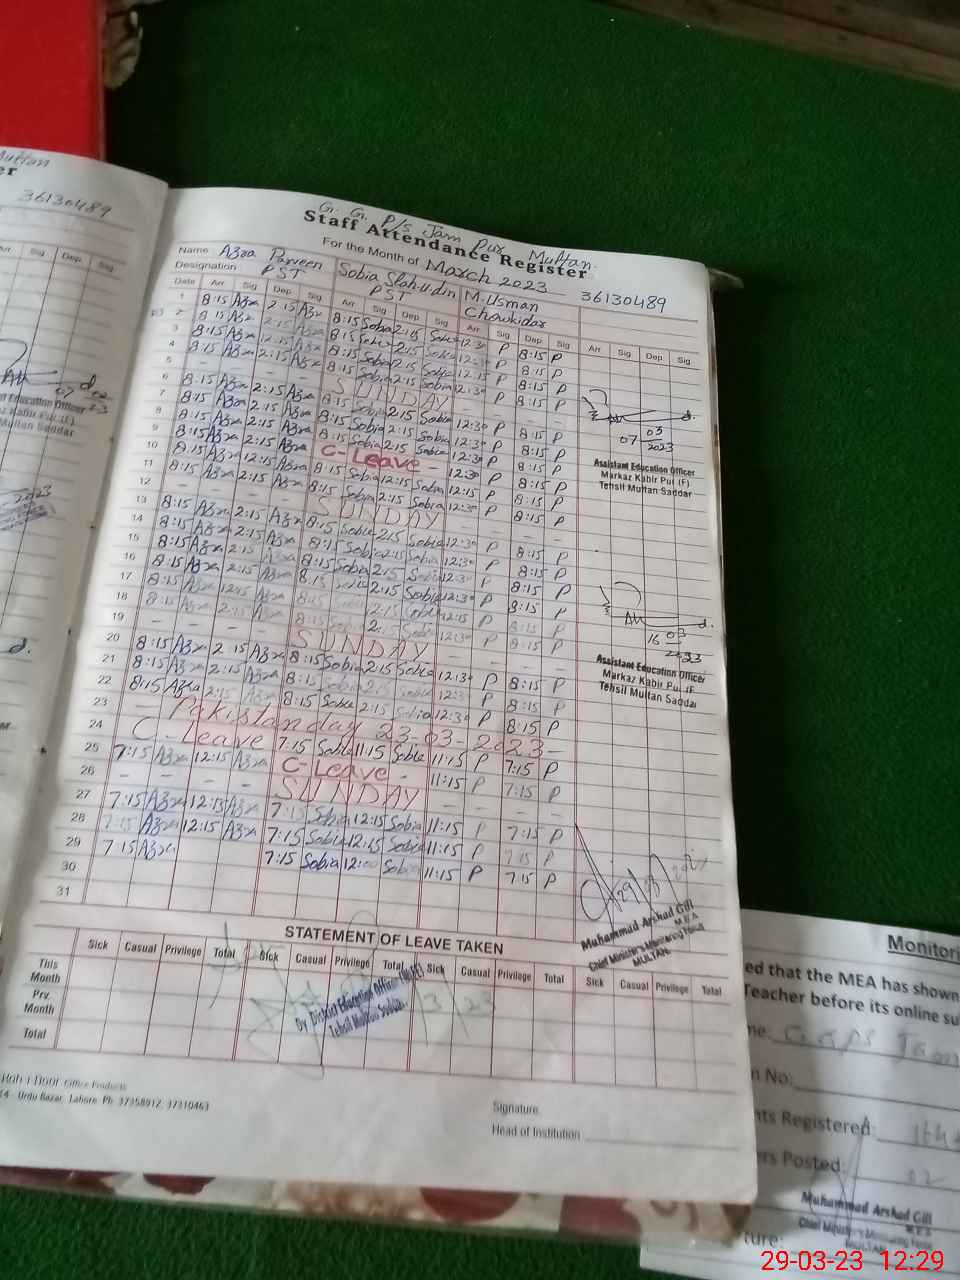 Multan
36130489
G. G. P/S Jam Pur Multan.
Staff Attendance Register
For the Month of March 2023 36130489
Name Azra Parveen Sobia Slah-u-din M. Usman
Designation PST PST Chowkidar
Date Arr Sig Dep Sig Arr Sig Dep Sig Arr Sig Dep Sig Arr Sig Dep Sig
1 8:15 Azra 2:15 Azra 8:15 Sobia 2:15 Sobia 12:30 P 8:15 P
2 8:15 Azra 2:15 Azra 8:15 Sobia 2:15 Sobia 12:30 P 8:15 P
3 8:15 Azra 12:15 Azra 8:15 Sobia 12:15 P 8:15 P
4 8:15 Azra 2:15 Azra 8:15 Sobia 2:15 Sobia 12:30 P 8:15 P
5 - - - - SUNDAY - - - -
6 8:15 Azra 2:15 Azra 8:15 Sobia 2:15 Sobia 12:30 P 8:15 P
7 8:15 Azra 2:15 Azra 8:15 Sobia 2:15 Sobia 12:30 P 8:15 P
8 8:15 Azra 2:15 Azra 8:15 Sobia 2:15 Sobia 12:30 P 8:15 P
9 8:15 Azra 2:15 Azra C-Leave - 12:30 P 8:15 P
10 8:15 Azra 12:15 Azra 8:15 Sobia 12:15 Sobia 12:15 P 8:15 P
11 8:15 Azra 2:15 Azra 8:15 Sobia 2:15 Sobia 12:30 P 8:15 P
12 - - - - SUNDAY - - - -
13 8:15 Azra 2:15 Azra 8:15 Sobia 2:15 Sobia 12:30 P 8:15 P
14 8:15 Azra 2:15 Azra 8:15 Sobia 2:15 Sobia 12:30 P 8:15 P
15 8:15 Azra 2:15 Azra 8:15 Sobia 2:15 Sobia 12:30 P 8:15 P
16 8:15 Azra 2:15 Azra 8:15 Sobia 2:15 Sobia 12:30 P 8:15 P
17 8:15 Azra 12:15 Azra 8:15 Sobia 12:15 P 8:15 P
18 8:15 Azra 2:15 Azra 8:15 Sobia 2:15 Sobia 12:30 P 8:15 P
19 - - - - SUNDAY - - - -
20 8:15 Azra 2:15 Azra 8:15 Sobia 2:15 Sobia 12:30 P 8:15 P
21 8:15 Azra 2:15 Azra 8:15 Sobia 2:15 Sobia 12:30 P 8:15 P
22 8:15 Azra 2:15 Azra 8:15 Sobia 2:15 Sobia 12:30 P 8:15 P
23 - Pakistan day 23-03-2023 -
24 C-Leave 7:15 Sobia 11:15 Sobia 11:15 P 7:15 P
25 7:15 Azra 12:15 Azra C-Leave - 11:15 P 7:15 P
26 - - - - SUNDAY - - - -
27 7:15 Azra 12:15 Azra 7:15 Sobia 12:15 Sobia 11:15 P 7:15 P
28 7:15 Azra 12:15 Azra 7:15 Sobia 12:15 Sobia 11:15 P 7:15 P
29 7:15 Azra 7:15 Sobia 12:00 Sobia 11:15 P 7:15 P
30
31
07 03 2023
Assistant Education Officer
Markaz Kabir Pur (F)
Tehsil Multan Saddar
16 03 2023
Assistant Education Officer
Markaz Kabir Pur (F
Tehsil Multan Saddar
Muhammad Arshad Gill
M.E.A
Chief Minister's Monitoring Force
MULTAN.
STATEMENT OF LEAVE TAKEN
Sick Casual Privilege Total Sick Casual Privilege Total Sick Casual Privilege Total Sick Casual Privilege Total
This Month
Prv. Month
Total
Dy District Education Officer (W-EE)
Tehsil Multan Saddar
Office Products
Urdu Bazar, Lahore. Ph: 37358912, 37310463
Signature
Head of Institution
Monitori
ed that the MEA has shown
Teacher before its online su
n No:
nts Registered:
ers Posted: 02
Muhammad Arshad Gill
M.E.A
Chief Minister's Monitoring Force
MULTAN
ture:
29-03-23 12:29